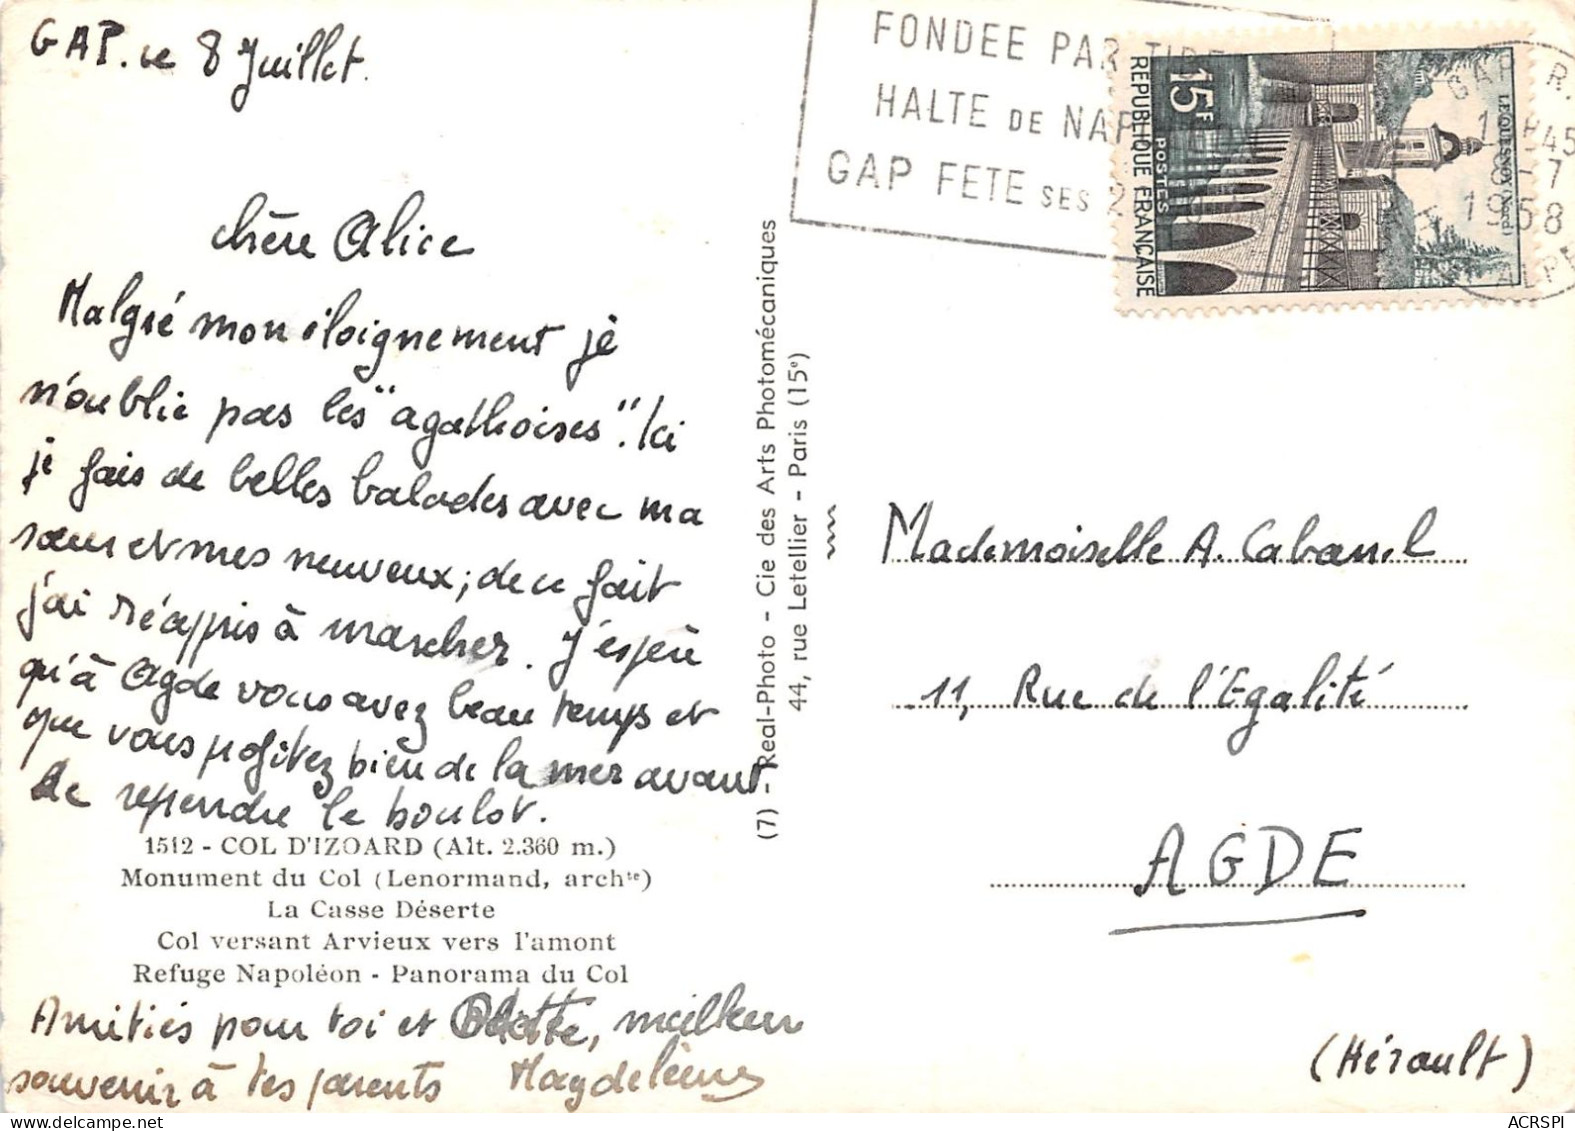 GAP. le 8 Juillet.
chère Alice
Malgré mon éloignement je
n'oublie pas les "agathoises". Ici
je fais de belles balades avec ma
sœur et mes neuveux; de ce fait
j'ai réappris à marcher. J'espère
qu'à Agde vous avez beau temps et
que vous profitez bien de la mer avant
de reprendre le boulot.
1512 - COL D'IZOARD (Alt. 2.360 m.)
Monument du Col (Lenormand, archte)
La Casse Déserte
Col versant Arvieux vers l'amont
Refuge Napoléon - Panorama du Col
Amitiés pour toi et Odette, meilleur
souvenir à tes parents Magdeleine
(7) - Real-Photo - Cie des Arts Photomécaniques
44, rue Letellier - Paris (15e)
FONDEE PAR
HALTE DE NAP
GAP FETE SES 2
15F
REPUBLIQUE FRANÇAISE
POSTES
LE QUESNOY (Nord)
GAP R.
8-7
1958
Mademoiselle A. Cabanel
11, Rue de l'Egalité
AGDE
(Hérault)
ACRSPI